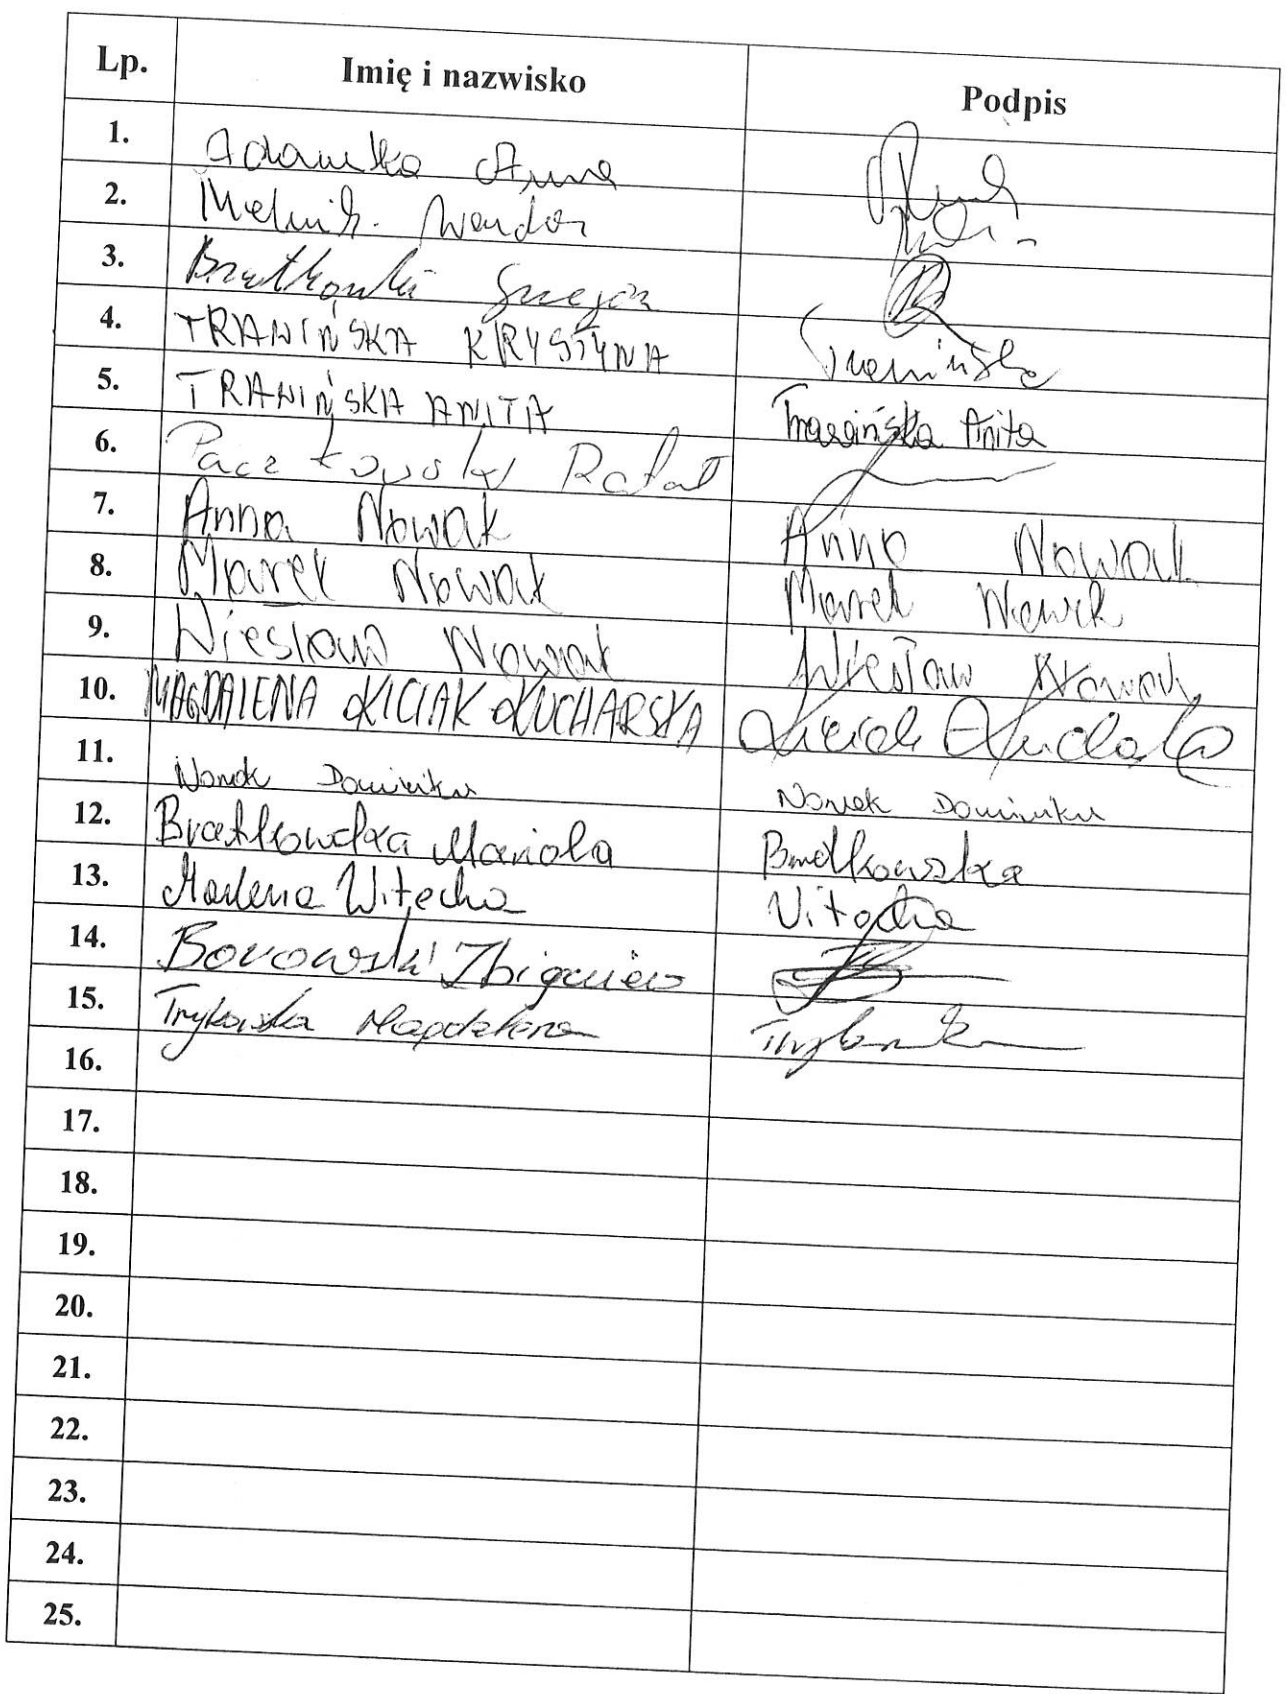 Lp. Imię i nazwisko Podpis
1. Adamska Anna
2. Melnik Wanda
3. Bratkowski Grzegorz
4. TRAWIŃSKA KRYSTYNA Trawińska
5. TRAWIŃSKA ANITA Trawińska Anita
6. Paczkowski Rafał
7. Anna Nowak Anna Nowak
8. Marek Nowak Marek Nowak
9. Wiesław Nowak Wiesław Nowak
10. MAGDALENA KICIAK KUCHARSKA Kiciak Kucharska
11. Nowak Dominika Nowak Dominika
12. Bratkowska Mariola Bratkowska
13. Marlena Witecha Witecha
14. Borowski Zbigniew
15. Trykowska Magdalena Trykowska
16.
17.
18.
19.
20.
21.
22.
23.
24.
25.